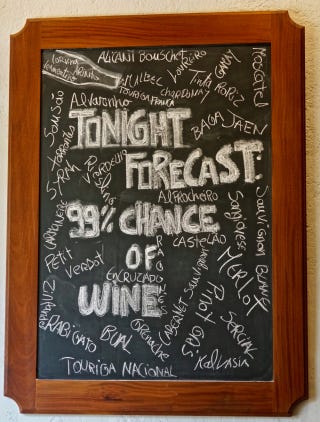 ALICANT BOUSCHET
LOUREIRO
GAMAY
MOSCATEL
ARINTO
MALBEC
CHARDONNAY
TINTA RORIZ
TOURIGA FRANCA
Alvarinho
SOUSÃO
TONIGHT
BAGA
JAEN
VERDELHO
SYRAH
FORECAST:
ALFROCHEIRO
99% CHANCE
CARMENERE
SANGIOVESE
SAUVIGNON BLANK
OF
CASTELÃO
MERLOT
Petit Verdot
ENCRUZADO
WINE
CABERNET Sauvignon
Pinot
SERCIAL
RABIGATO
BUAL
GRENACHE
MALVASIA
TOURIGA NACIONAL